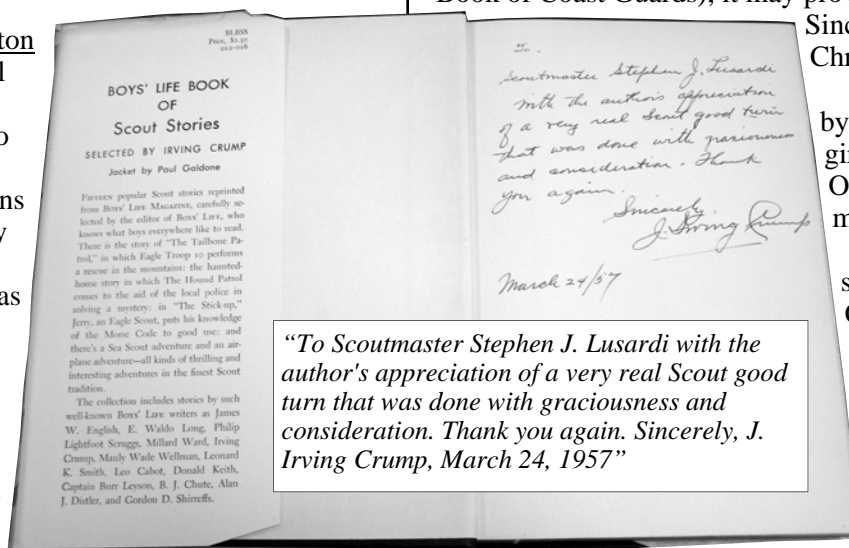 ton
l
o
ns
y
as
Book of Coast Guards), it may pro
Sinc
Chr
by
gi
O
m
s
BLBSS
Price, $2.50
012-016
BOYS' LIFE BOOK
OF
Scout Stories
SELECTED BY IRVING CRUMP
Jacket by Paul Galdone
FIFTEEN popular Scout stories reprinted
from BOYS' LIFE MAGAZINE, carefully se-
lected by the editor of BOYS' LIFE, who
knows what boys everywhere like to read.
There is the story of "The Tailbone Pa-
trol," in which Eagle Troop 10 performs
a rescue in the mountains: the haunted-
house story in which The Hound Patrol
comes to the aid of the local police in
solving a mystery: in "The Stick-up,"
Jerry, an Eagle Scout, puts his knowledge
of the Morse Code to good use: and
there's a Sea Scout adventure and an air-
plane adventure—all kinds of thrilling and
interesting adventures in the finest Scout
tradition.
The collection includes stories by such
well-known BOYS' LIFE writers as James
W. English, E. Waldo Long, Philip
Lightfoot Scruggs, Millard Ward, Irving
Crump, Manly Wade Wellman, Leonard
K. Smith, Leo Cabot, Donald Keith,
Captain Burr Leyson, B. J. Chute, Alan
J. Distler, and Gordon D. Shirreffs.
To.
Scoutmaster Stephen J. Lusardi
with the author's appreciation
of a very real Scout good turn
that was done with graciousness
and consideration. Thank
you again.
Sincerely
J. Irving Crump
March 24/57
“To Scoutmaster Stephen J. Lusardi with the
author's appreciation of a very real Scout good
turn that was done with graciousness and
consideration. Thank you again. Sincerely, J.
Irving Crump, March 24, 1957”